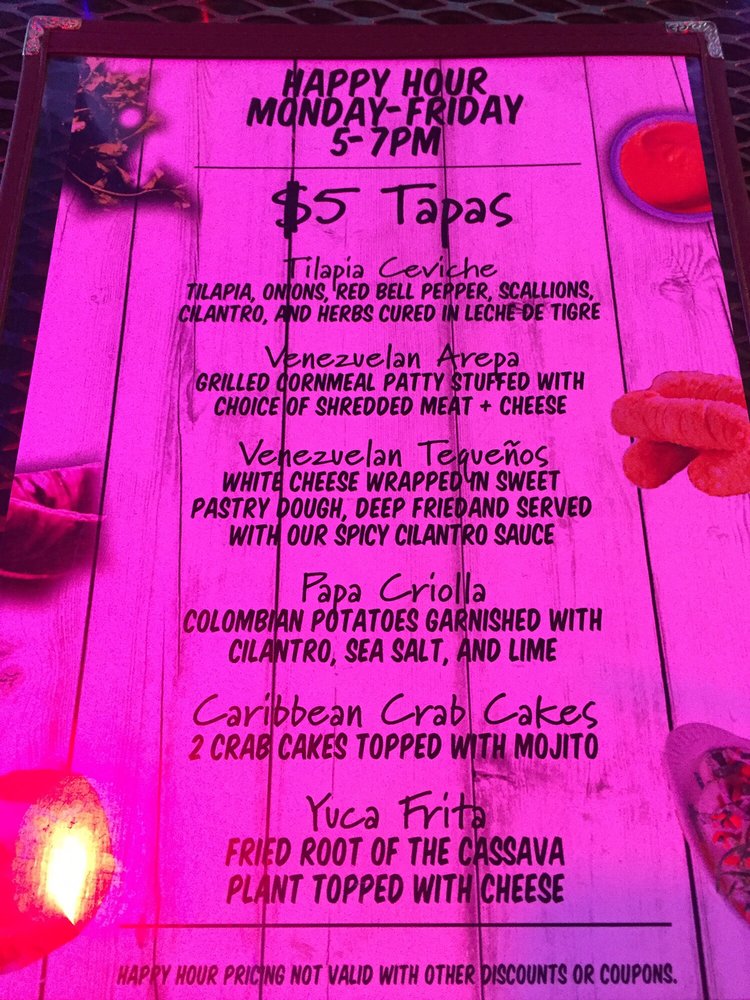 HAPPY HOUR
MONDAY-FRIDAY
5-7PM
$5 Tapas
Tilapia Ceviche
TILAPIA, ONIONS, RED BELL PEPPER, SCALLIONS,
CILANTRO, AND HERBS CURED IN LECHE DE TIGRE
Venezuelan Arepa
GRILLED CORNMEAL PATTY STUFFED WITH
CHOICE OF SHREDDED MEAT + CHEESE
Venezuelan Tequeños
WHITE CHEESE WRAPPED IN SWEET
PASTRY DOUGH, DEEP FRIEDAND SERVED
WITH OUR SPICY CILANTRO SAUCE
Papa Criolla
COLOMBIAN POTATOES GARNISHED WITH
CILANTRO, SEA SALT, AND LIME
Caribbean Crab Cakes
2 CRAB CAKES TOPPED WITH MOJITO
Yuca Frita
FRIED ROOT OF THE CASSAVA
PLANT TOPPED WITH CHEESE
HAPPY HOUR PRICING NOT VALID WITH OTHER DISCOUNTS OR COUPONS.